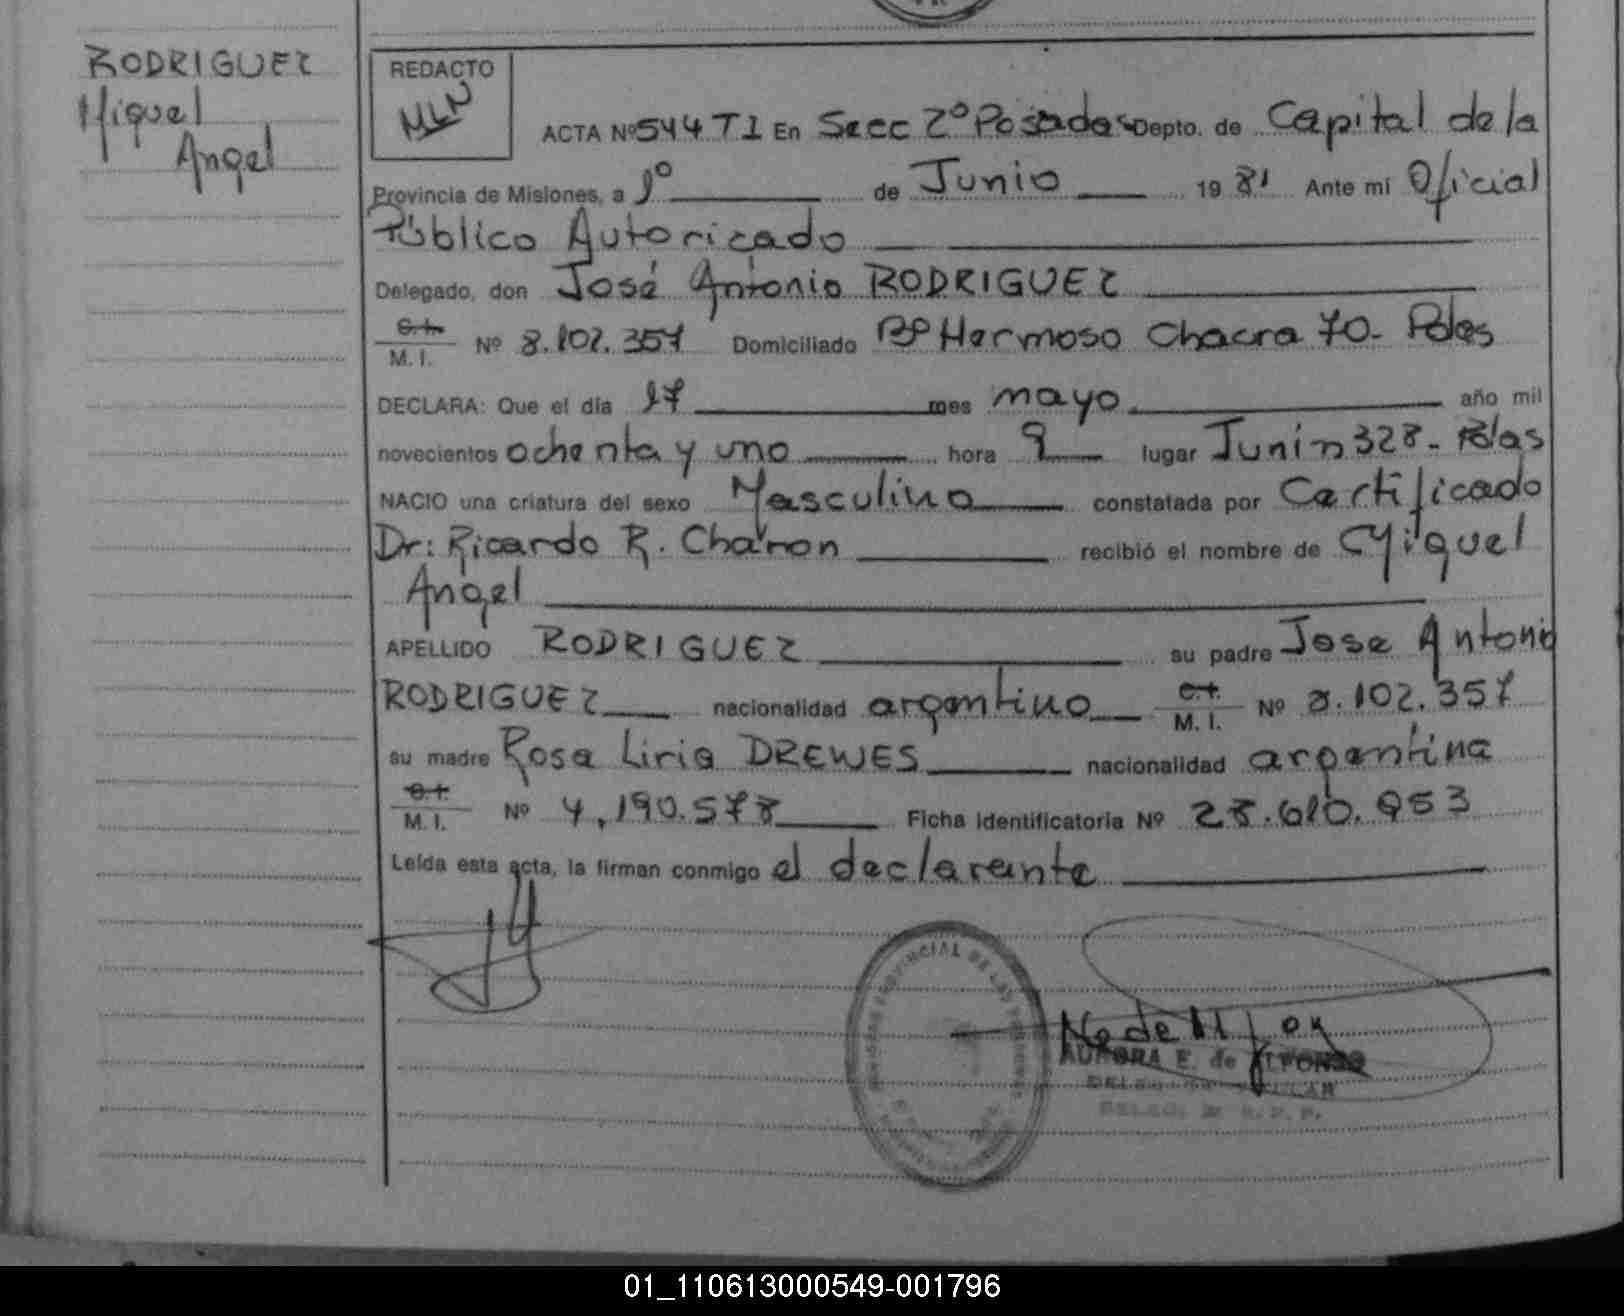 RODRIGUEZ
Miguel
Angel
REDACTO
MLN
ACTA Nº 544 T I En Secc 2º Posadas Depto. de Capital de la
Provincia de Misiones, a 1º de Junio 19 81 Ante mí Oficial
Público Autorizado
Delegado, don José Antonio RODRIGUEZ
C.I.
M. I. Nº 8.102.357 Domiciliado Bº Hermoso Chacra 70- Pdas
DECLARA: Que el día 17 mes mayo año mil
novecientos ochenta y uno hora 9 lugar Junín 328- Pdas
NACIO una criatura del sexo Masculino constatada por Certificado
Dr: Ricardo R. Charon recibió el nombre de Miguel
Angel
APELLIDO RODRIGUEZ su padre Jose Antonio
RODRIGUEZ nacionalidad argentino C.I.
M. I. Nº 8.102.357
su madre Rosa Liria DREWES nacionalidad argentina
C.I.
M. I. Nº 4.190.578 Ficha identificatoria Nº 28.610.953
Leída esta acta, la firman conmigo el declarante
PROVINCIAL DE LAS PERSONAS
AURORA E. de ALFONZO
01_110613000549-001796